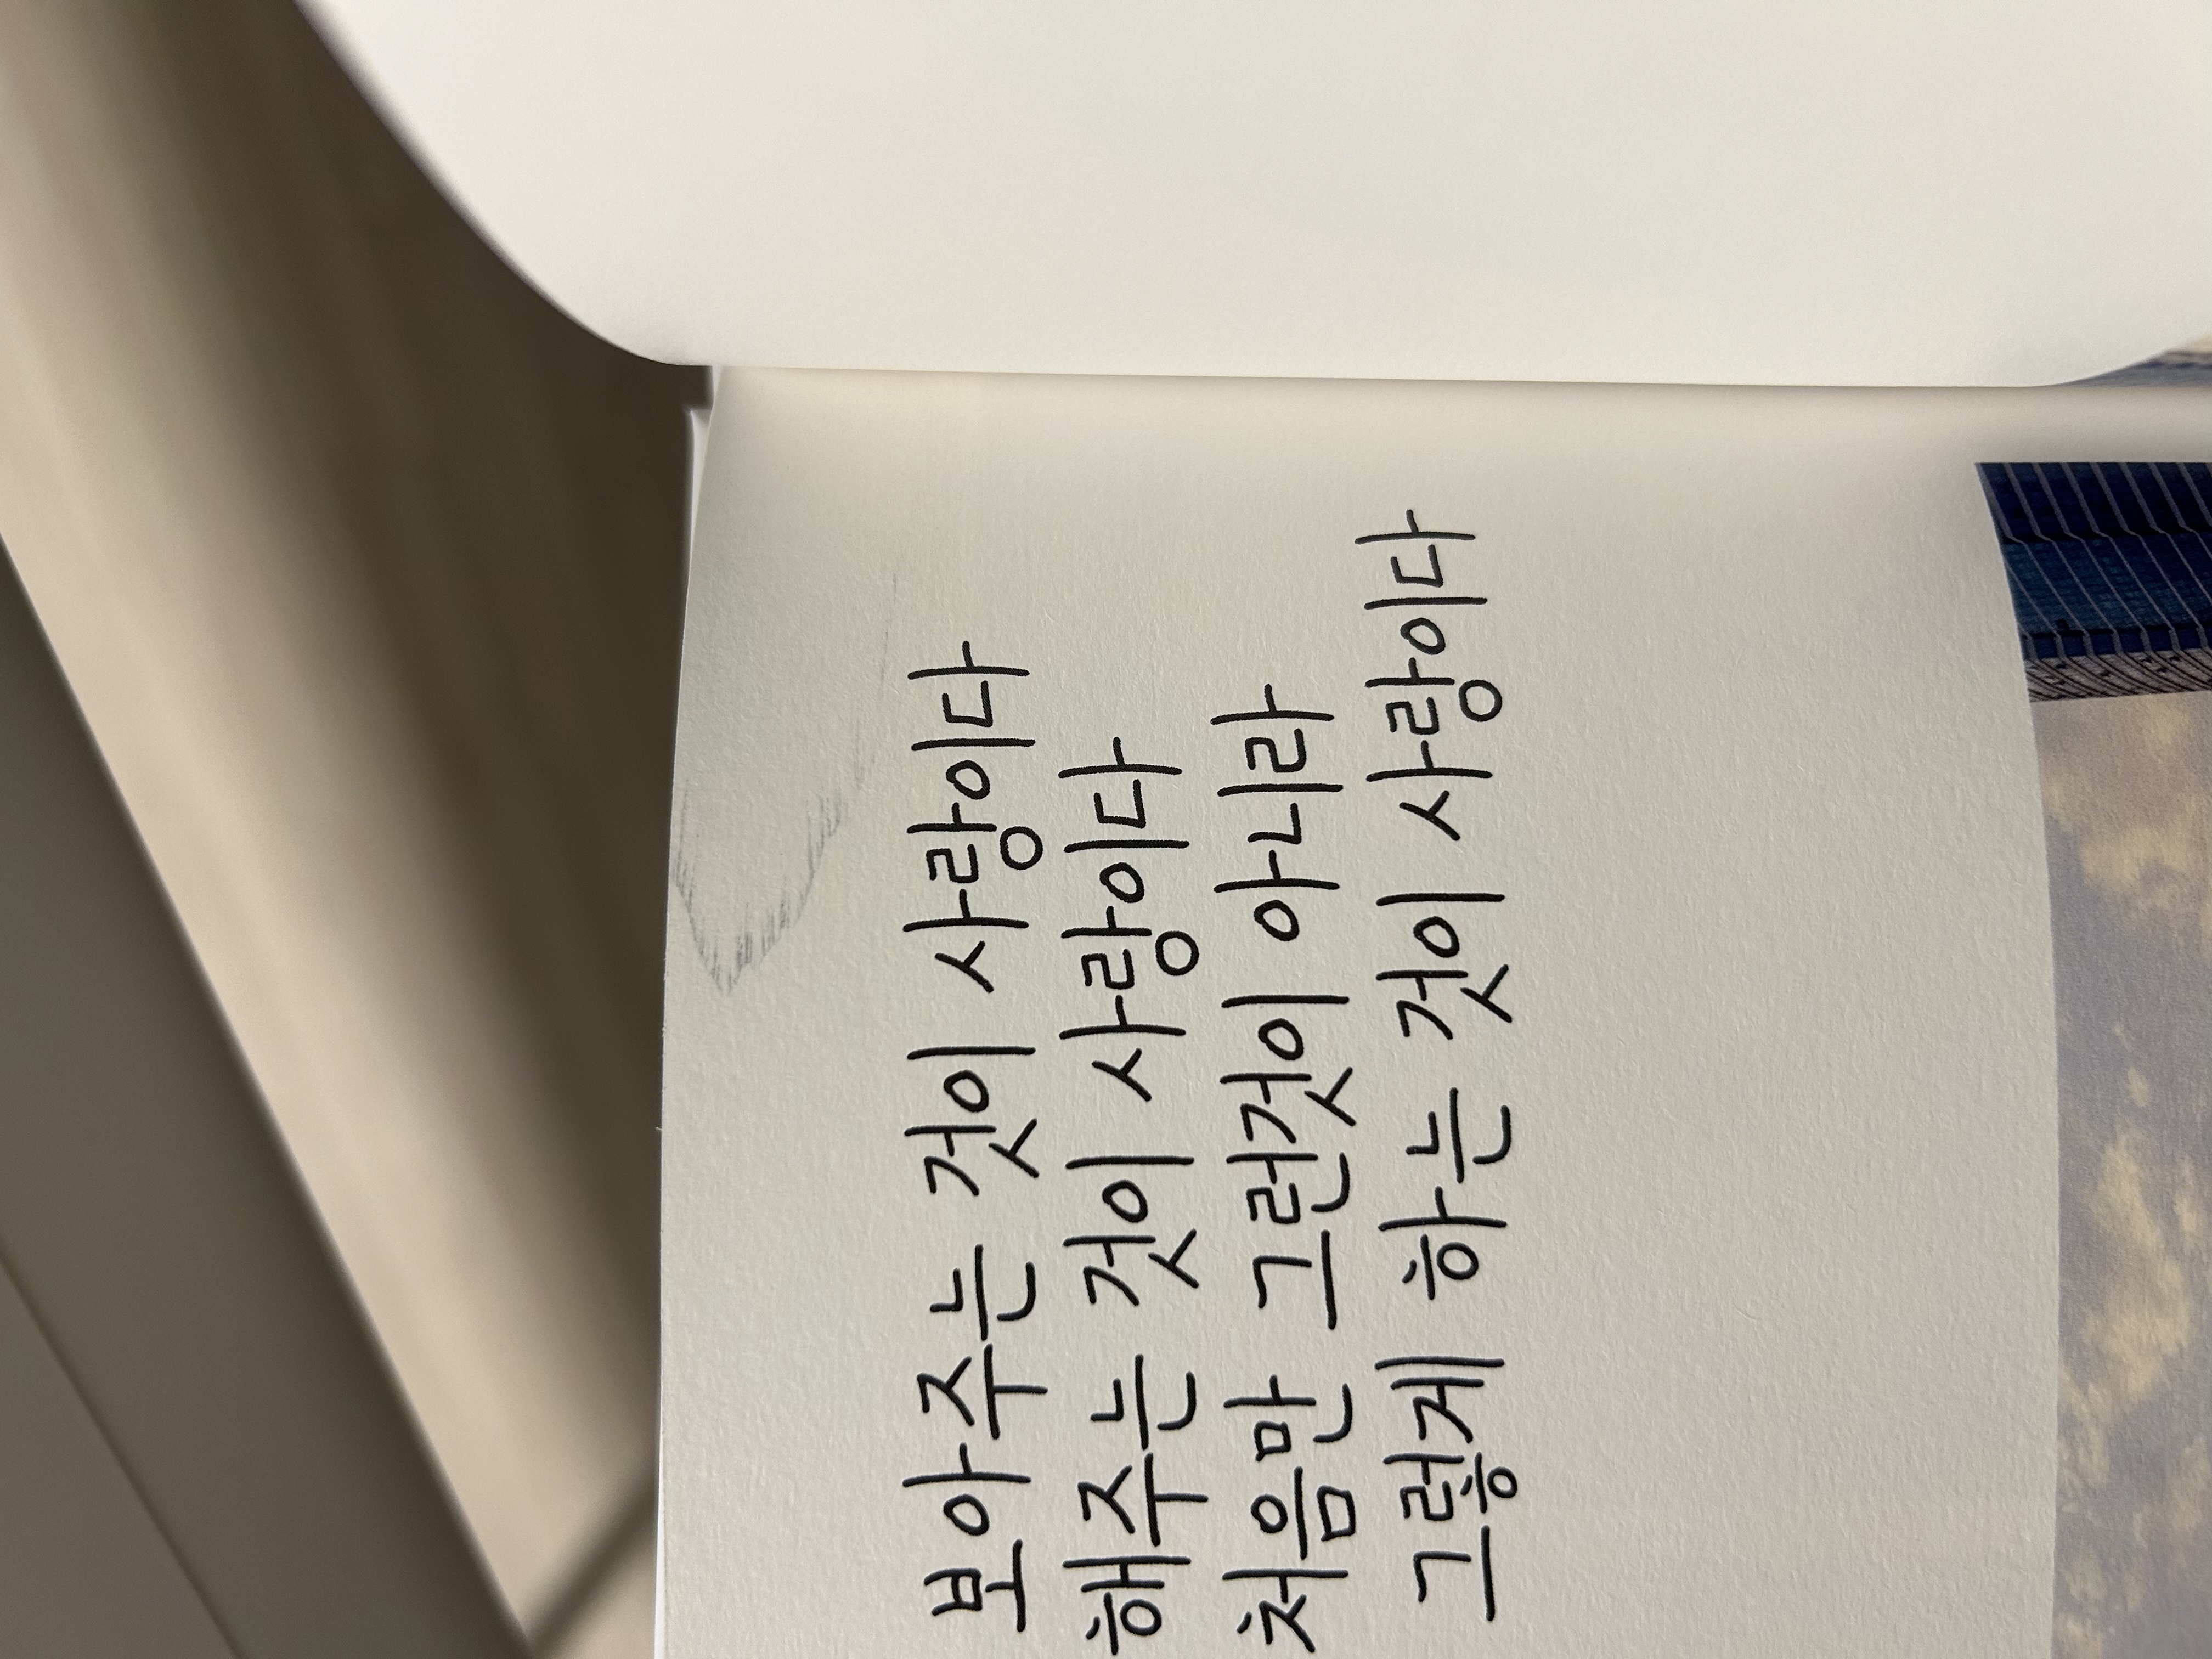 보아주는 것이 사랑이다
해주는 것이 사랑이다
처음만 그런것이 아니라
그렇게 하는 것이 사랑이다